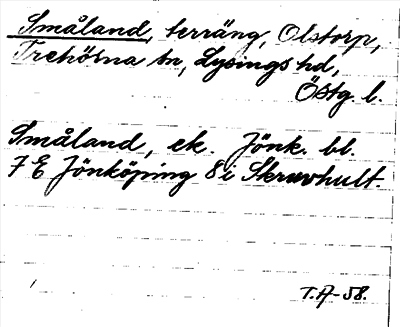 Småland, terräng, Olstorp,
Trehörna sn, Lysings hd,
Östg. l.
Småland, ek. Jönk. bl.
7 E Jönköping 8 i Skruvhult.
T.A-58.